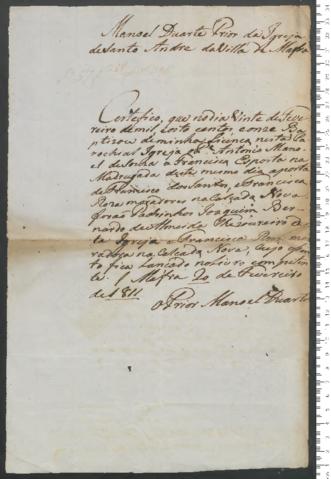 Manoel Duarte Prior da Igreja
de Santo Andre da Villa de Mafra
Certefico, que no dia vinte de Feve-
reiro de mil, oito centos, e onze Bap-
tizou de minha licença nesta Pa-
rochial Igreja o P.e Antonio Mano-
el de a Francisca Exposta na
Madrugada deste mesmo dia aporta
de Francisco dos Santos, e Francisca
Roza moradores na Calçada Nova
forao Padrinhos Joaquim Ber-
nardo de Almeida Thezoureiro des-
ta Igreja e Francisca Roza mo-
radora na Calcada Nova, cujo
to fica lancado no Livro competen-
te. Mafra 20 de Fevereiro
de 1811.
O Prior Manoel Duarte